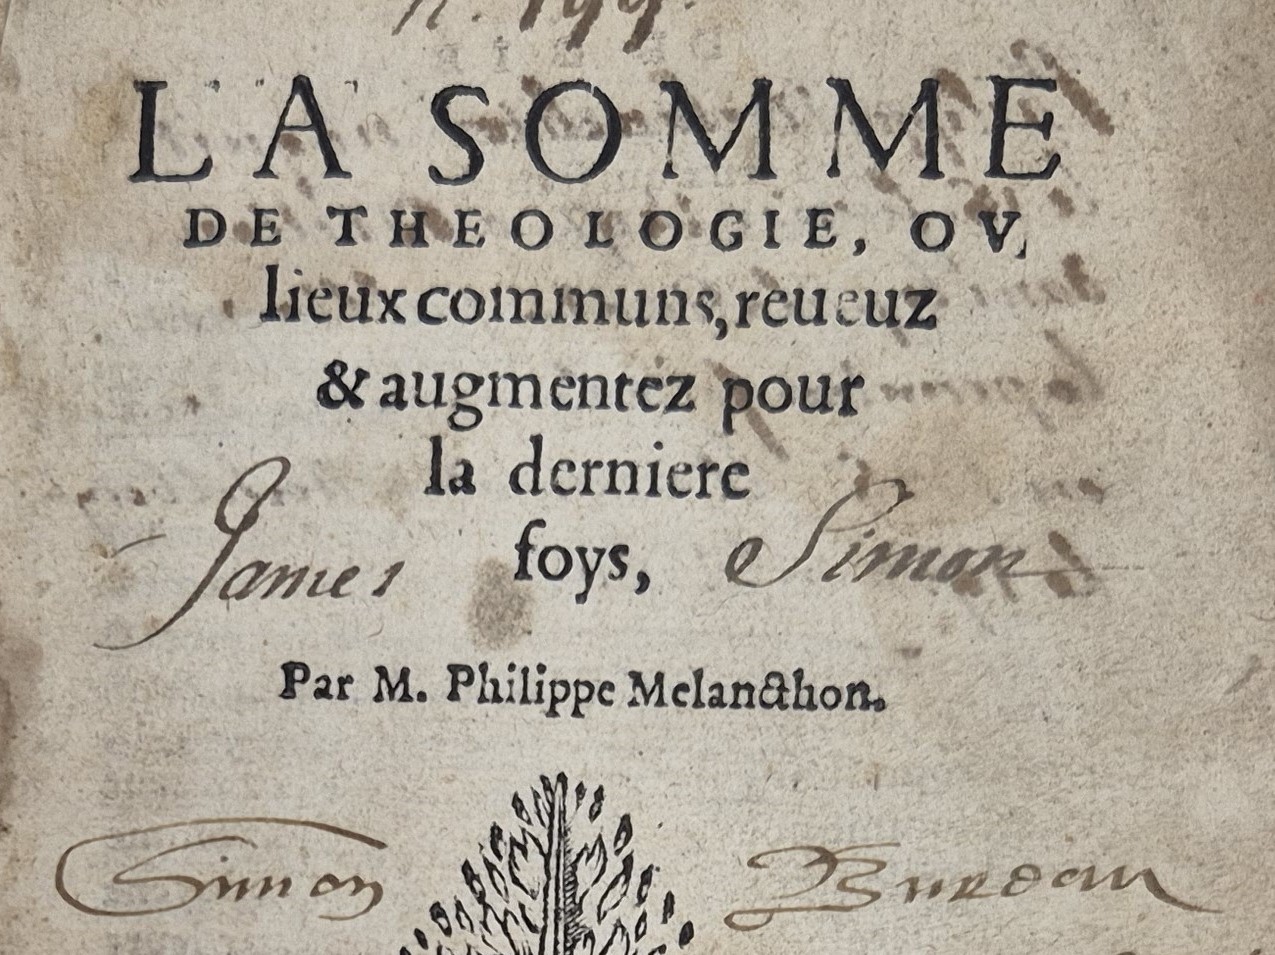 LA SOMME
DE THEOLOGIE, OV,
lieux communs, reueuz
& augmentez pour
la derniere
James foys, Simon
Par M. Philippe Melancthon.
Simon Bureau